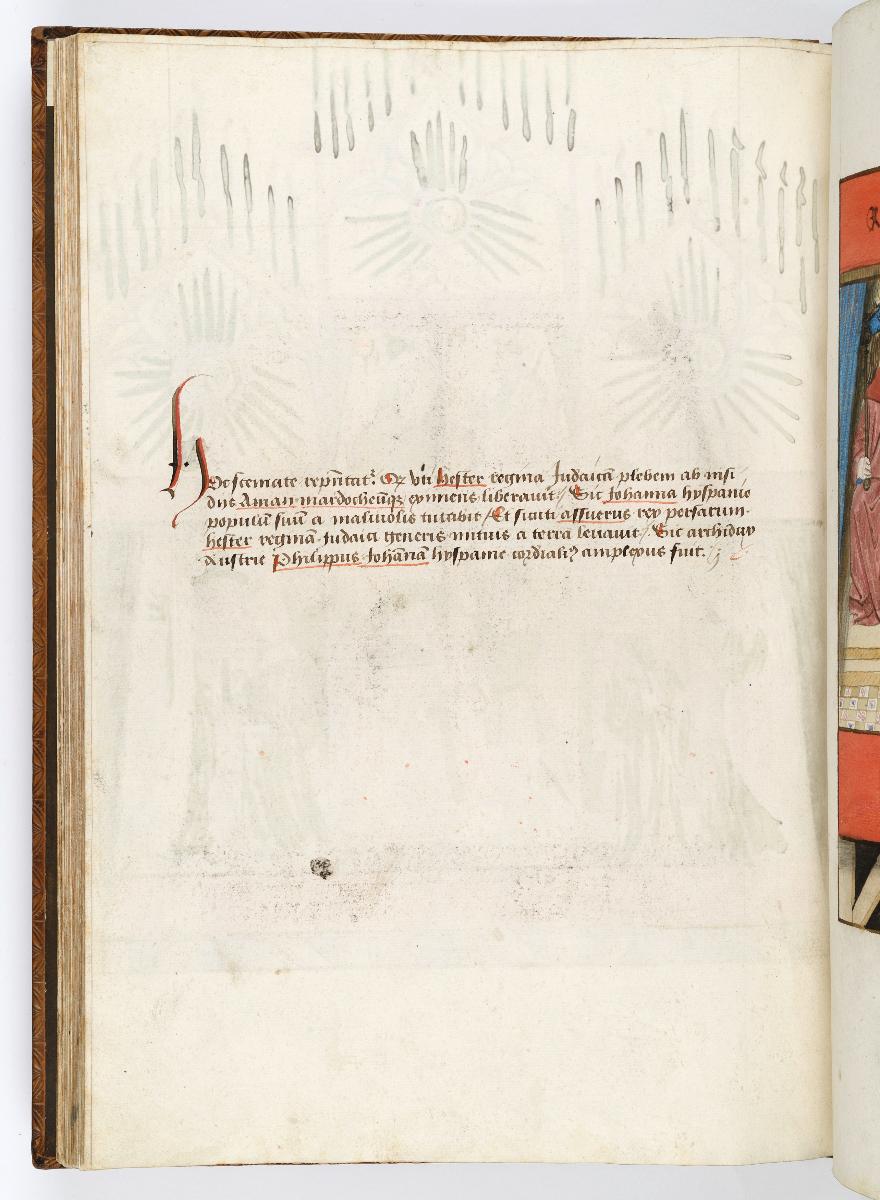 Hoc scemate rep̃ntat᷑. Qꝫ vti hester regina Judaicã plebem ab insi
dijs Aman mardocheũqꝫ eximens liberauit / Sic Johanna hyspanie
populũ suũ a maliuolis tutabit / Et sicuti assuerus rex persarum
hester reginã Judaici generis mitius a terra leuauit / Sic archidux
Austrie Philippus Johãnã hyspanie cordialiꝰ amplexus fuit.